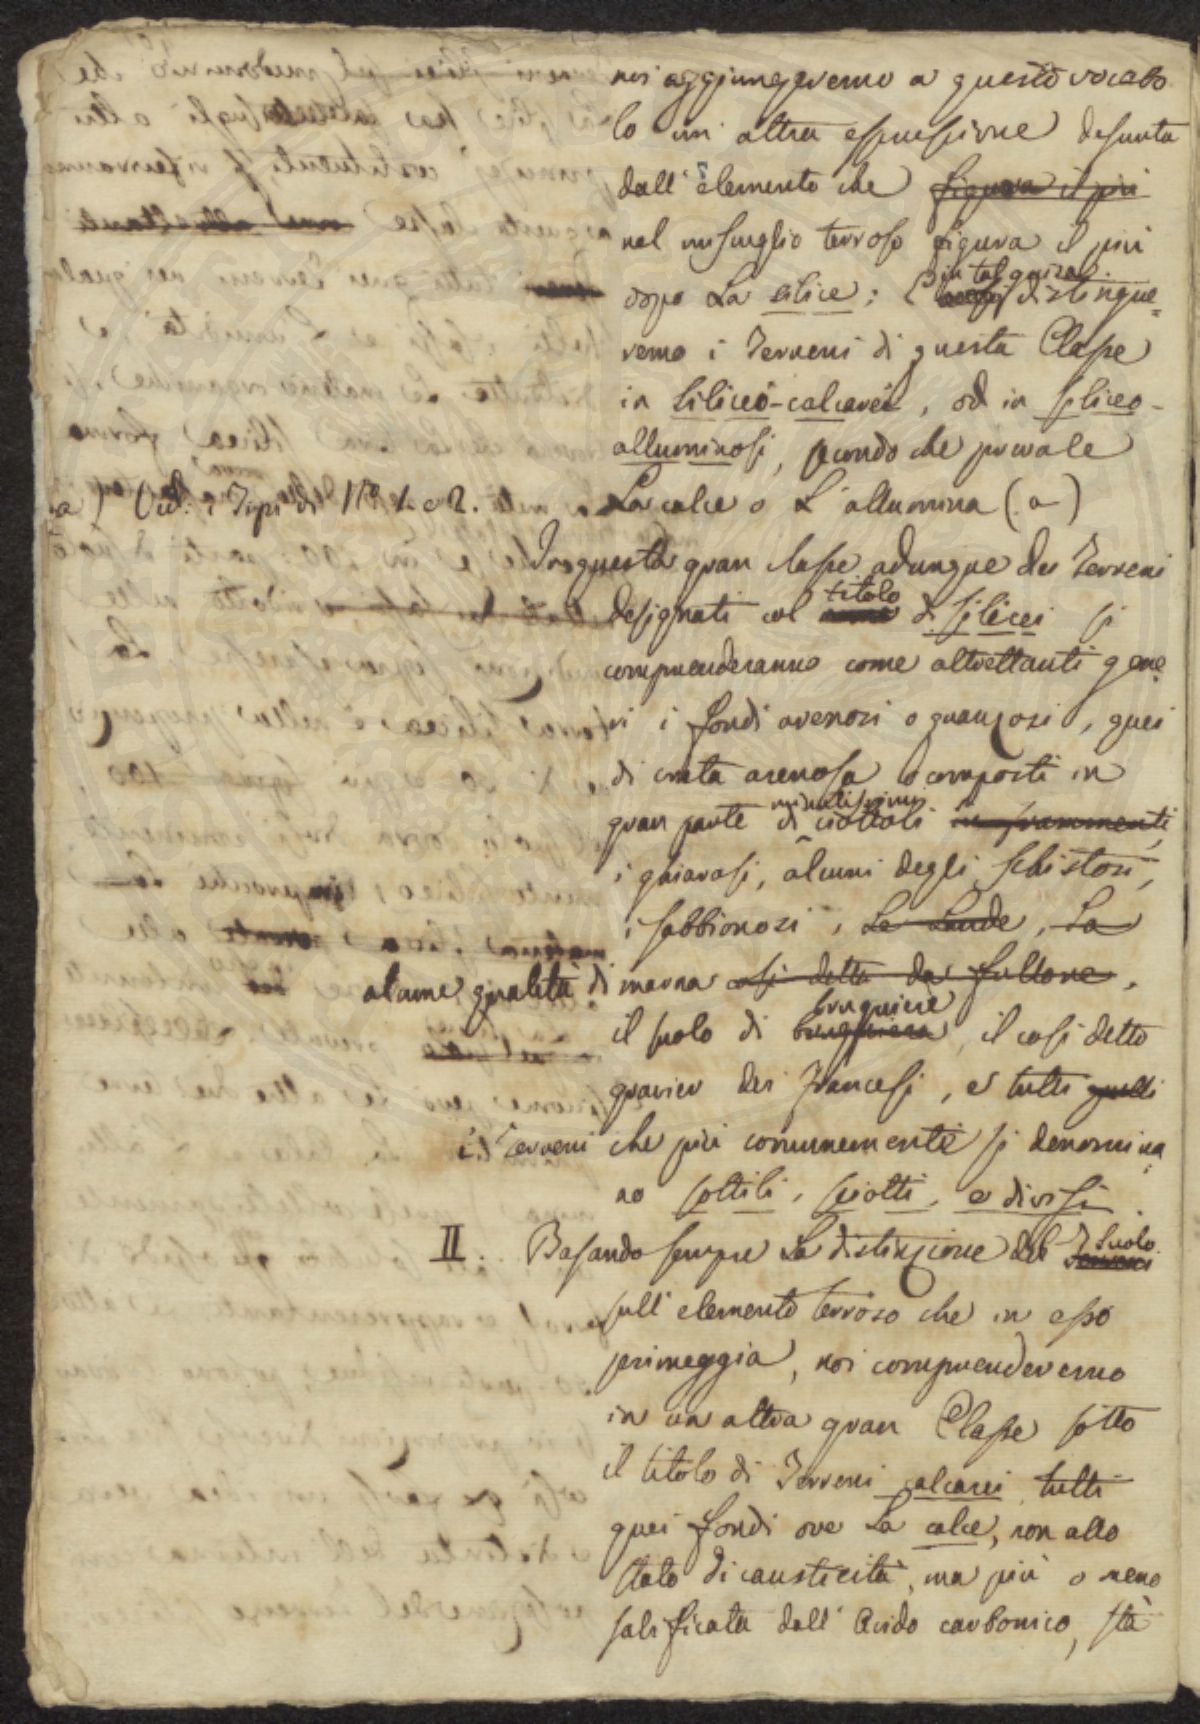 noi aggiungeremo a questo vocabo
lo un altra espressione desunta
dall' elemento che figura il più
nel miscuglio terroso figura il più
dopo La silice; E in tal guisa distingue=
remo i Terreni di questa Classe
in siliceo-calcarei, od in siliceo-
alluminosi, secondo che prevale
La calce o L'allumina (a)
a) Ved. i Tipi di N.º 1. e 2.
In questa gran classe adunque dei Terreni
designati col nome titolo di silicei si
comprenderanno come altrettanti gene=
ri i fondi arenosi o quarzosi, quei
di creta arenosa o composti in
gran parte di minutissimi ciottoli in frammenti,
i ghiarosi, alcuni degli schistosi,
i sabbionosi, Le Lande, La
alcune qualità di marna così detta da follone,
il suolo di brughiera brughiere, il così detto
gravier dei Francesi, e tutti quelli
i Terreni che più comunemente si denomina=
no sottili, sciolti, e divisi.
II. Basando sempre La distinzione del Terreni Suolo
sull' elemento terroso che in esso
primeggia, noi comprenderemo
in un altra gran Classe sotto
il titolo di Terreni calcarei tutti
quei fondi ove La calce, non allo
stato di causticità, ma più o meno
salificata dall' Acido carbonico, stà